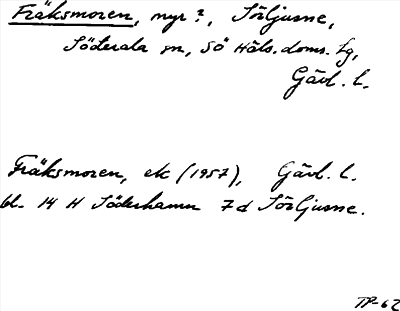 Fräksmoren, nyr?, Sörljusne,
Söderala sn, Sö Häls. doms. tg,
Gävl. l.
Fräksmoren, ek (1957), Gävl. l.
bl. 14 H Söderhamn 7d Sörljusne.
TP-62